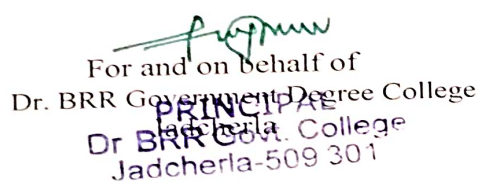 For and on behalf of
Dr. BRR Government Degree College
Jadcherla
PRINCIPAL
Dr BRR Govt. College
Jadcherla-509 301